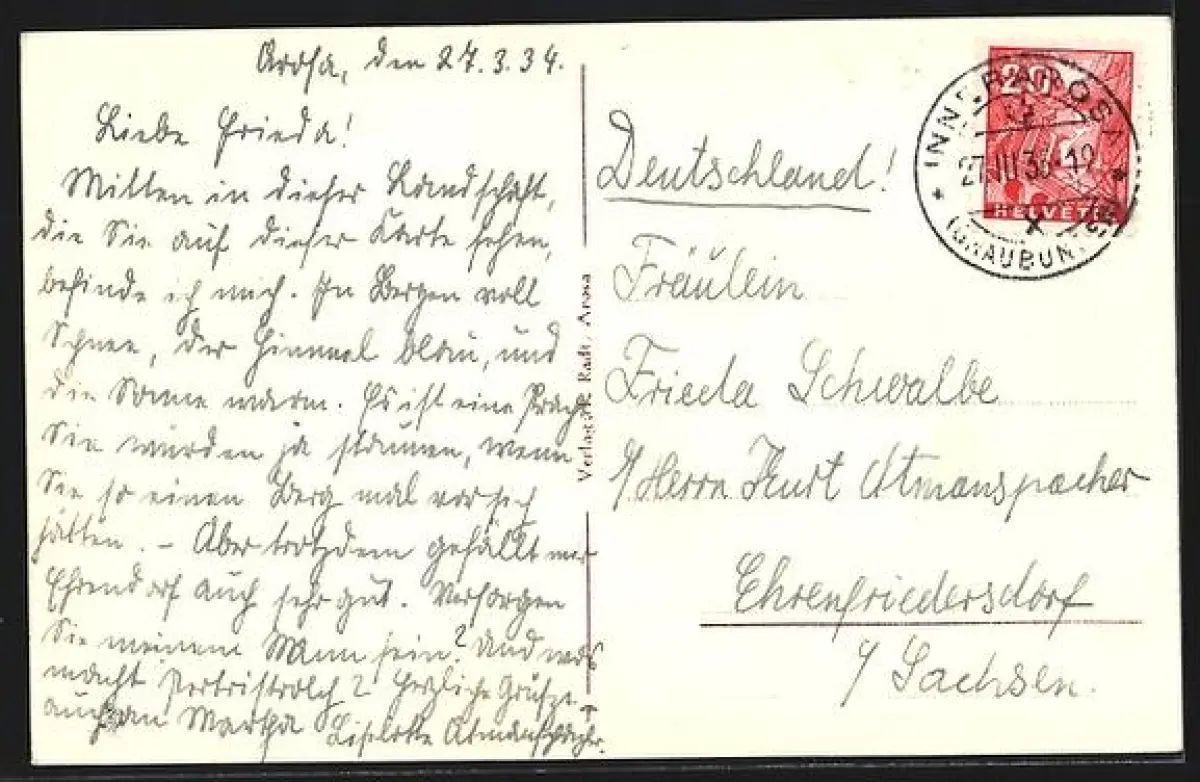 Arosa, den 27.3.34.
Liebe Frieda!
Mitten in dieser Landschaft,
die Sie auf dieser Karte sehen,
befinde ich mich. In Bergen voll
Schnee, der Himmel blau, und
die Sonne warm. Es ist eine Pracht
Sie würden ja staunen, wenn
Sie so einen Berg mal vor sich
hätten. – Aber trotzdem gefällt mir
Ehrendorf auch sehr gut. Versorgen
Sie meinem Mann fein? Und was
macht ? Herzliche Grüße
auch an Martha Liselotte Atmanspacher.
Verlag Radt, Arosa
Deutschland!
Fräulein
Frieda Schwalbe
b/ Herrn Kurt Atmanspacher
Ehrenfriedersdorf
i/ Sachsen.
20
HELVETIA
INNERAROSA
(GRAUBÜNDEN)